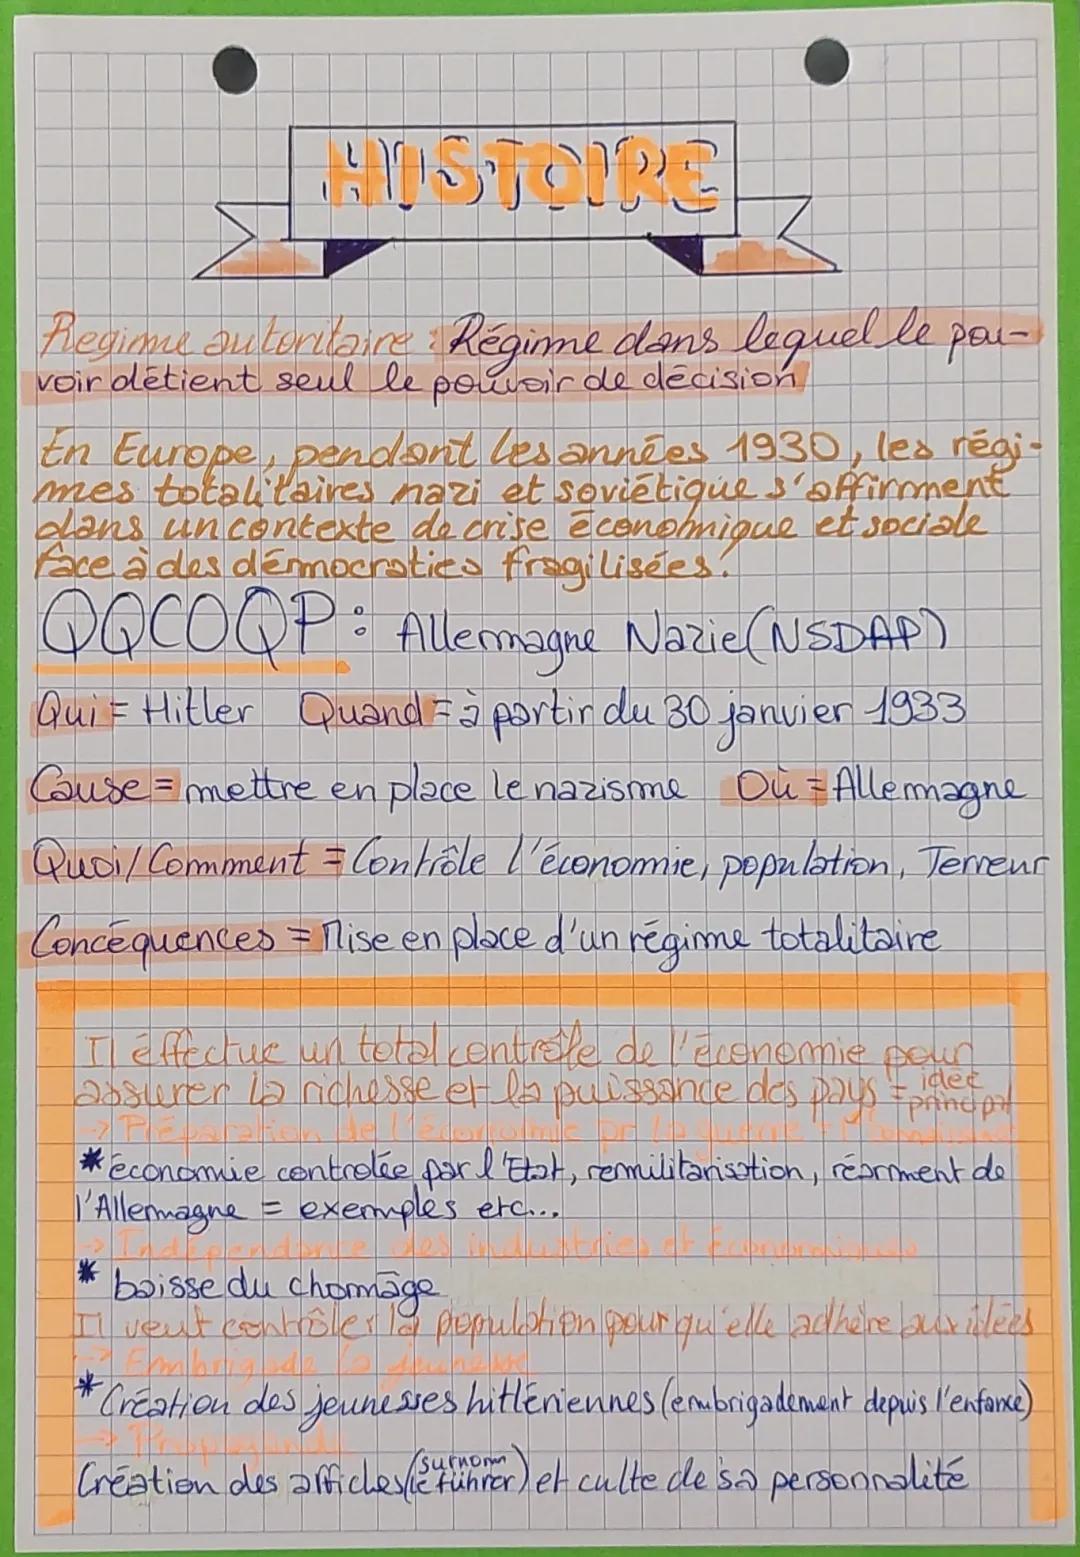 HISTOIRE
Regime autoritaire : Régime dans lequel le pou-
voir détient seul le pouvoir de décision
En Europe, pendant les années 1930, les régi-
mes totalitaires nazi et soviétique s'affirment
dans un contexte de crise économique et sociale
face à des démocraties fragilisées.
QQCOQP : Allemagne Nazie (NSDAP)
Qui = Hitler Quand = à partir du 30 janvier 1933
Cause = mettre en place le nazisme Où = Allemagne
Quoi/Comment = Contrôle l'économie, population, Terreur
Concéquences = Mise en place d'un régime totalitaire
Il éffectue un total contrôle de l'économie pour
assurer la richesse et la puissance des pays = idée principal
-> Préparation de l'économie pr la guerre
* économie controlée par l'Etat, remilitarisation, réarment de
l'Allemagne = exemples etc...
-> Indépendance des industries et économiques
* baisse du chomage
Il veut contrôler la population pour qu'elle adhère aux idées
-> Embrigade la jeunesse
* Création des jeunesses hitlériennes (embrigadement depuis l'enfance)
-> Propagande
Création des affiches (surnom le führer) et culte de sa personnalité